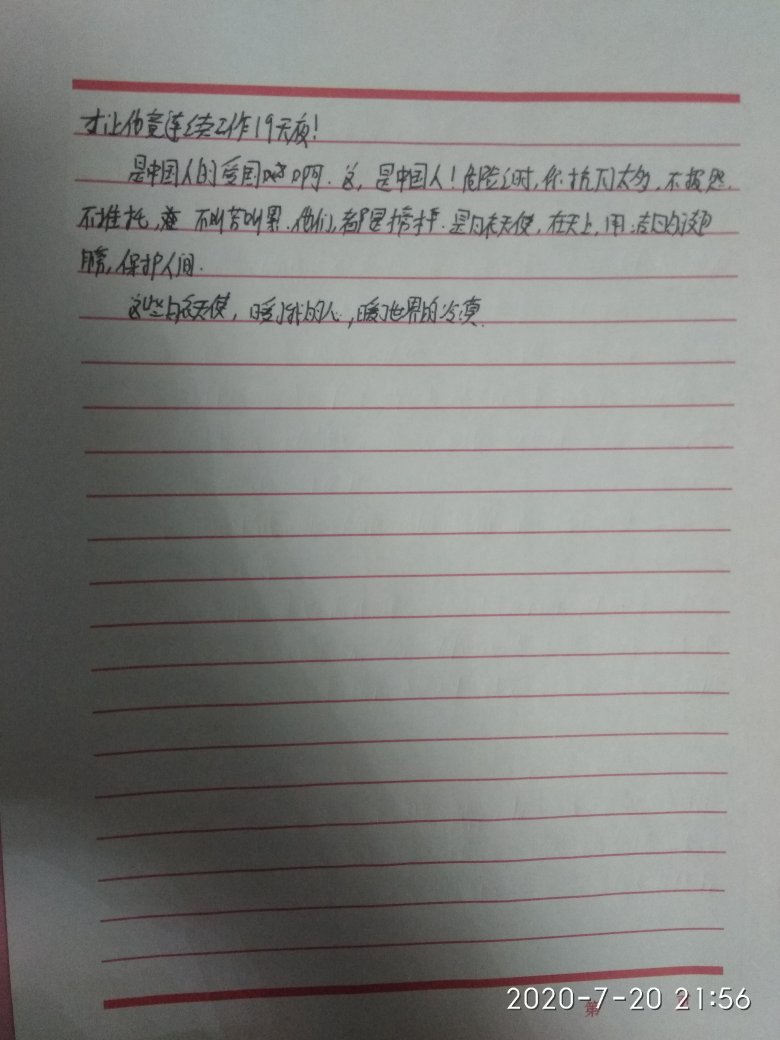 才让他竟连续工作19天夜!
是中国人的爱国心啊.这,是中国人!危险之时,你抗下太多,不报怨.
不推托,不叫苦叫累.他们,都是榜样.是白衣天使,在天上,用洁白的
膀,保护人间.
这些白衣天使,暖了我的心,暖了世界的冷漠.
第
2020-7-20 21:56